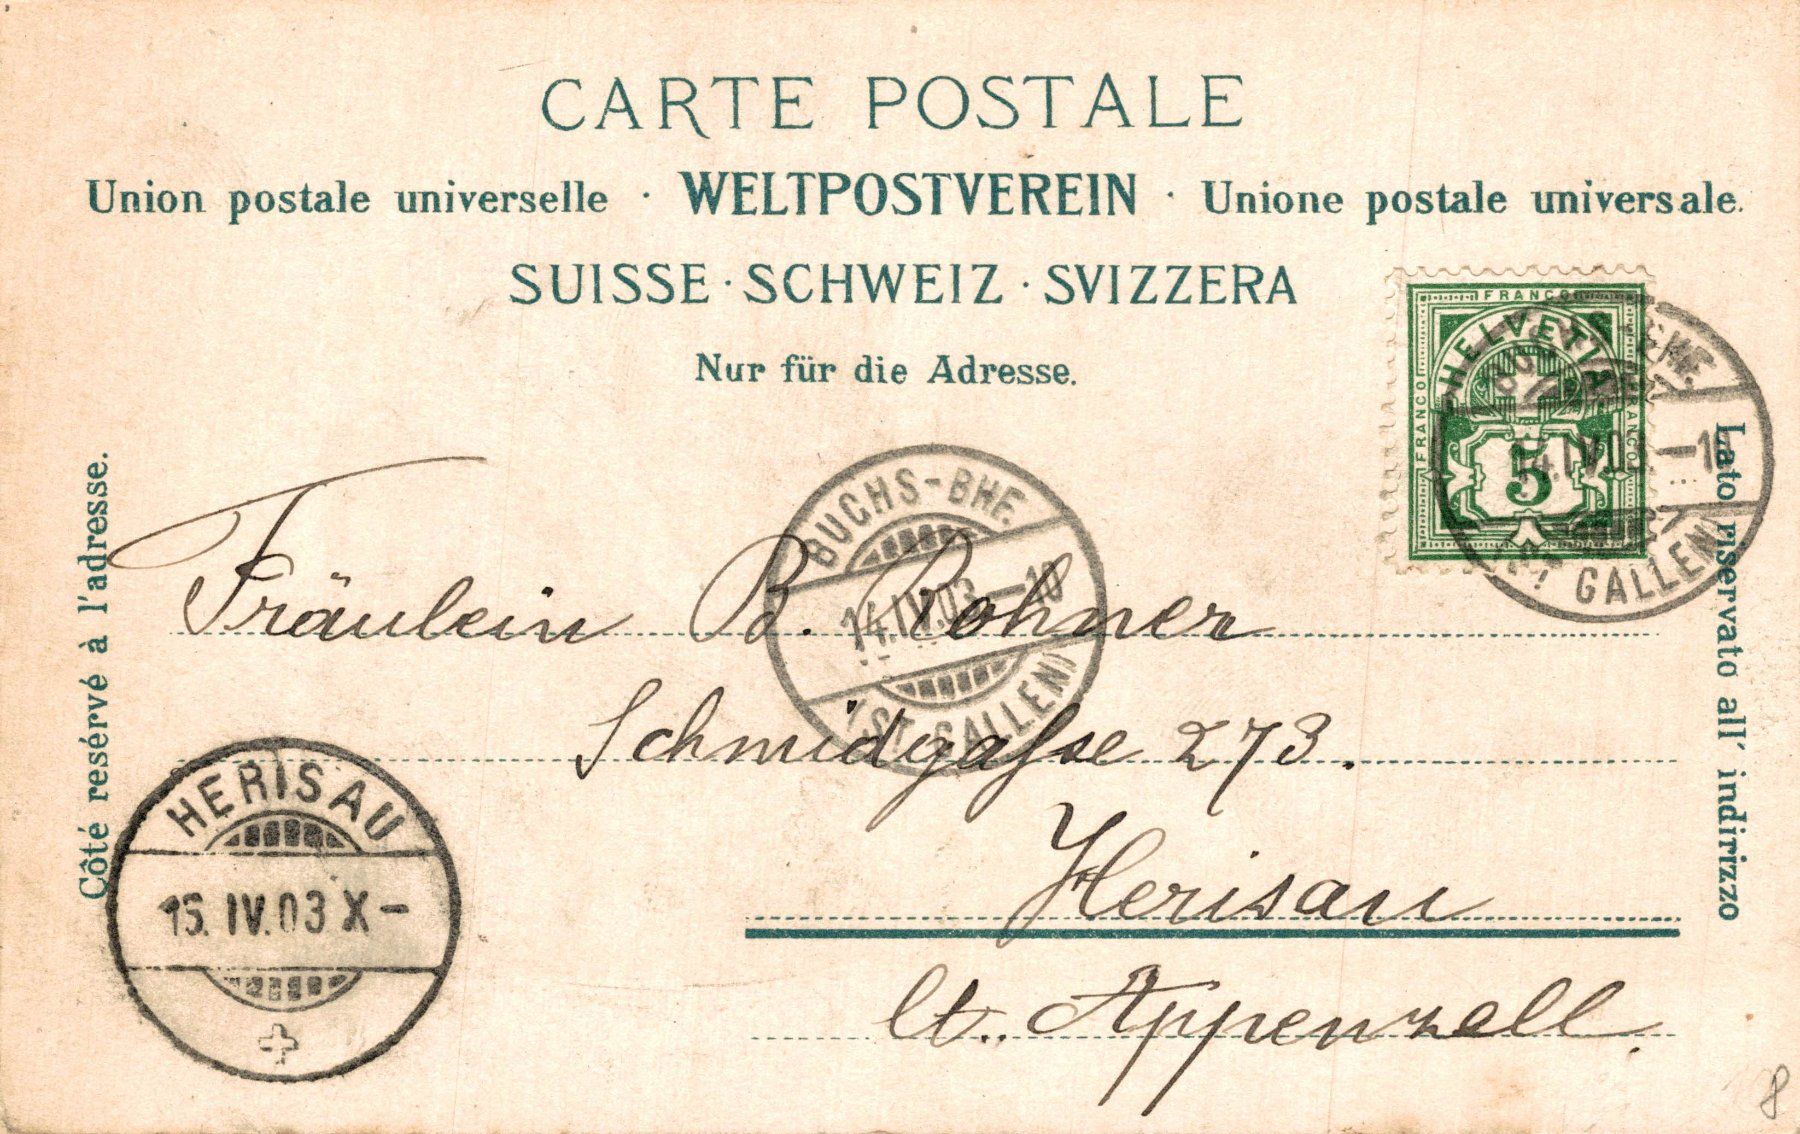 CARTE POSTALE
Union postale universelle · WELTPOSTVEREIN · Unione postale universale.
SUISSE · SCHWEIZ · SVIZZERA
Nur für die Adresse.
FRANCO
HELVETIA
FRANCO
FRANCO
5
BHF.
14.IV.03.–10
ST. GALLEN)
Côté resérvé à l'adresse.
Lato riservato all' indirizzo
BUCHS-BHF.
14.IV.03–10
(ST. GALLEN)
Fräulein B. Rohner
Schmidgaſse 273.
Herisau
Ct. Appenzell.
HERISAU
15. IV. 03 X–
8